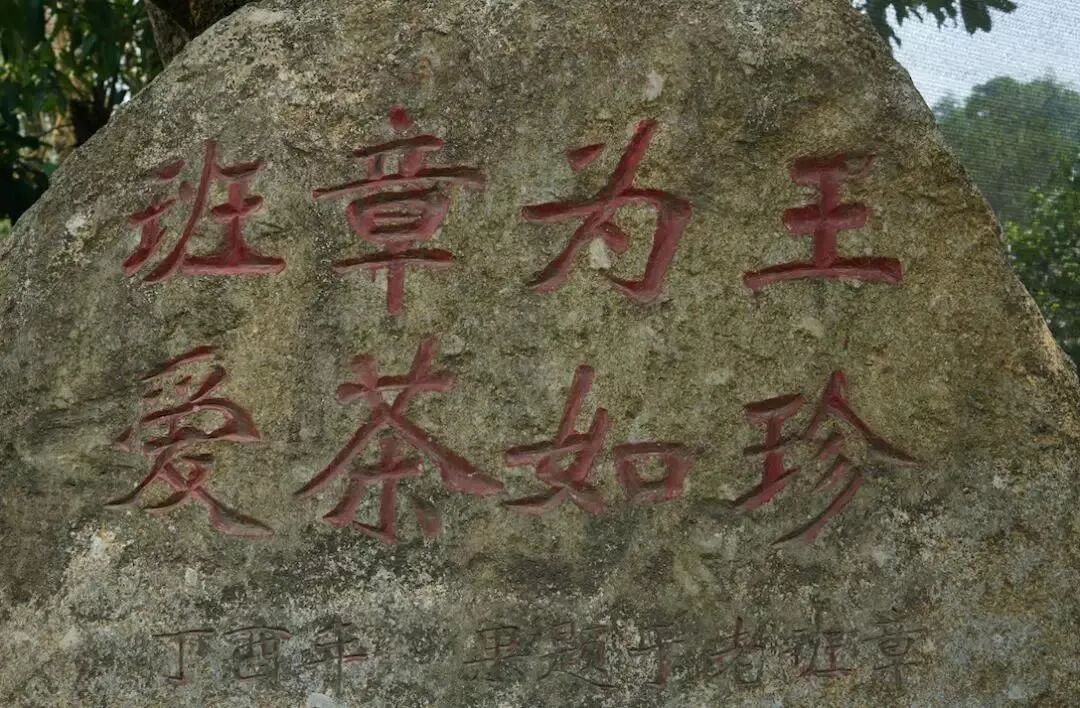 班章为王
爱茶如珍
丁酉年 果题于老班章